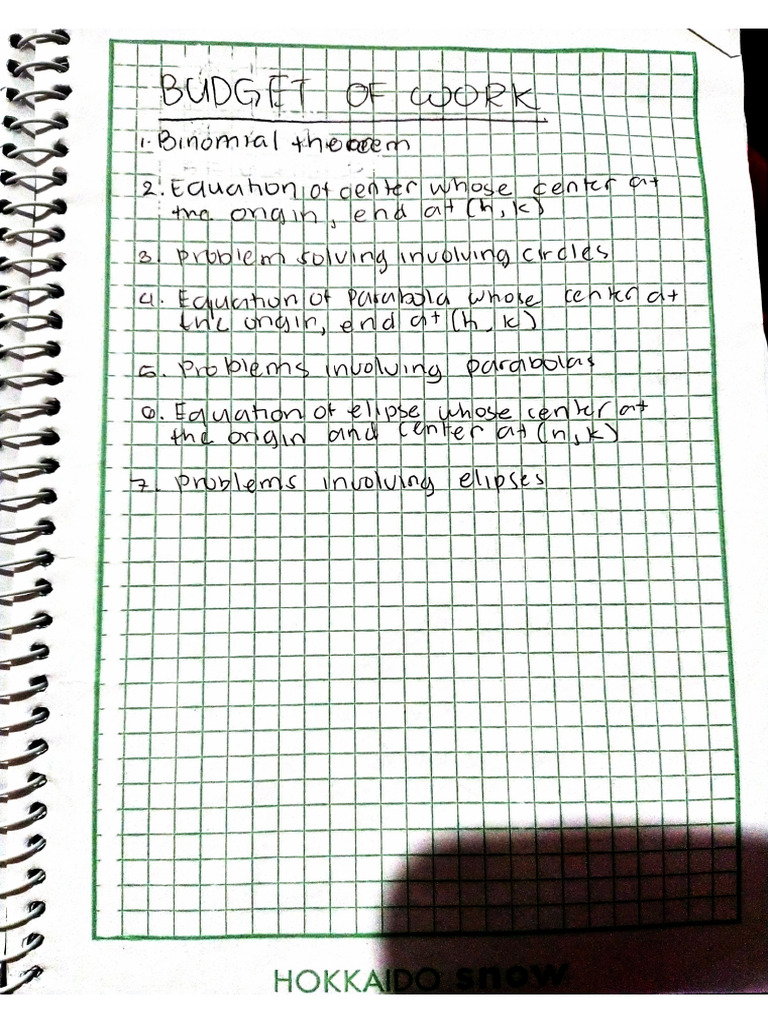 BUDGET OF WORK
1. Binomial theorem
2. Equation of center whose center at
the origin, end at (h, k)
3. problem solving involving circles
4. Equation of Parabola whose center at
the origin, end at (h, k)
5. Problems involving parabolas
6. Equation of elipse whose center at
the origin and center at (h, k)
7. problems involving elipses
HOKKAIDO snow